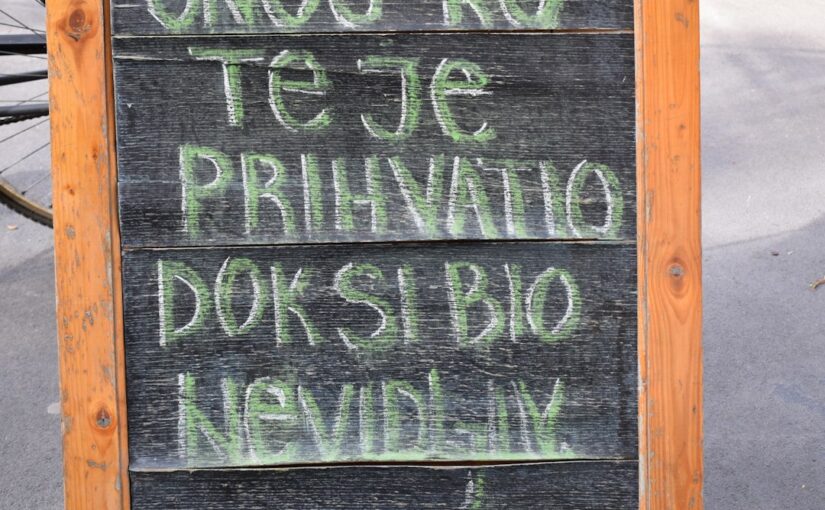 Te Je
PRIHVATIO
DOK SI BIO
NeVIDLJIV.